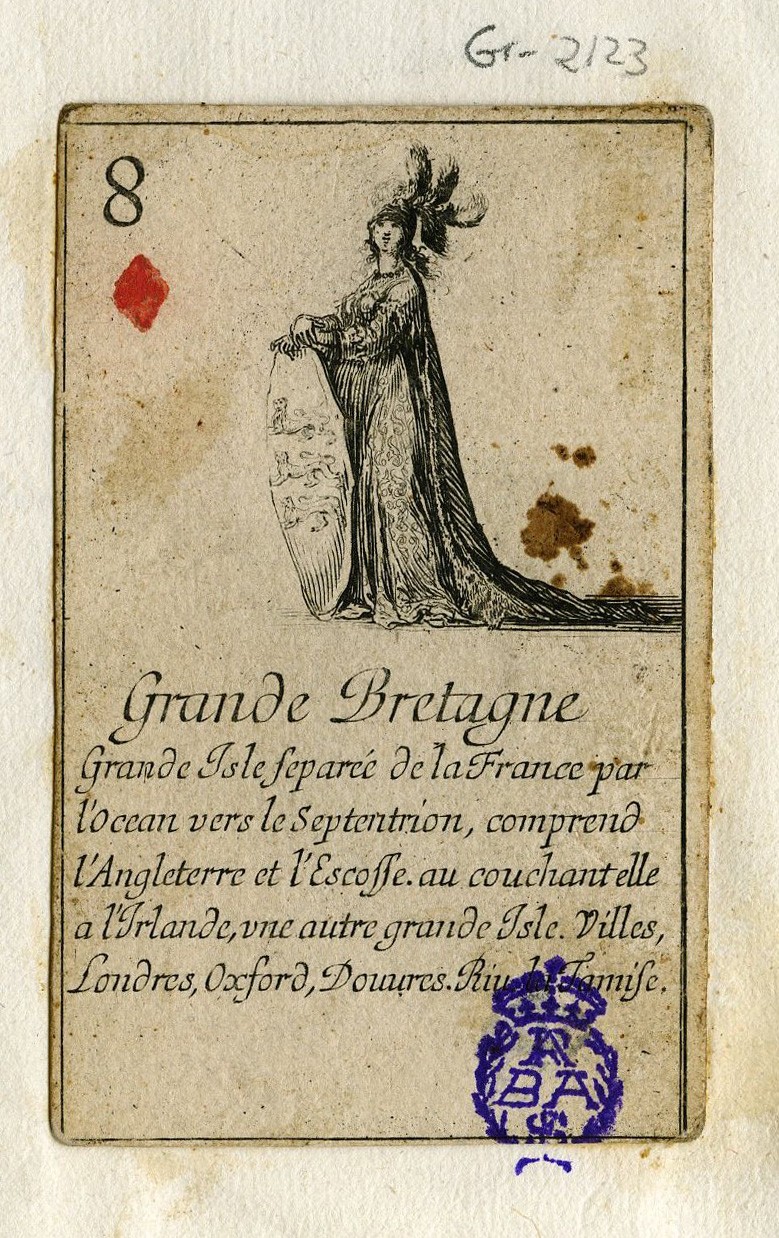 Gr-2123
8
Grande Bretagne
Grande Isle separeé de la France par
l'Ocean vers le Septentrion, comprend
l'Angleterre et l'Escosse. au couchant elle
a l'Irlande, vne autre grande Isle. Villes,
Londres, Oxford, Douures. Riu. la Tamise.
BA